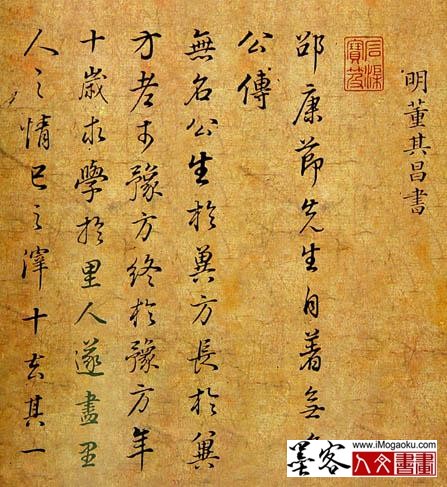 明董其昌書
石渠寶笈
邵康節先生自著無名
公傳
無名公生於冀方長於冀
方老於豫方終於豫方年
十歲求學於里人遂盡里
人之情己之滓十去其一
www.iMogaoku.com
墨客人文書畫